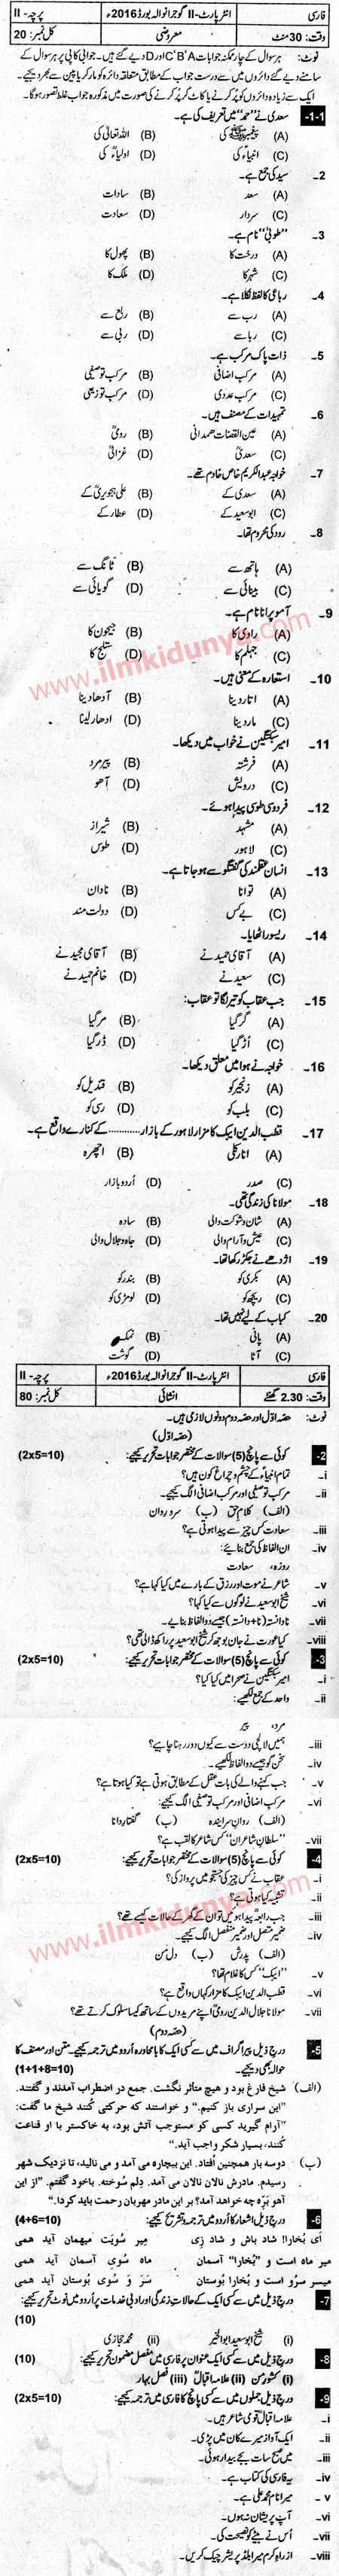 فارسی | انٹر پارٹ-II گوجرانوالہ بورڈ 2016ء | پرچہ-II
وقت: 30 منٹ | معروضی | کل نمبر: 20
نوٹ: ہر سوال کے چار ممکنہ جوابات A'B'C اور D دیے گئے ہیں۔ جوابی کاپی پر ہر سوال کے
سامنے دیے گئے دائروں میں سے درست جواب کے مطابق متعلقہ دائرہ کو مارکر یا پین سے بھر دیجیے۔
ایک سے زیادہ دائروں کو پُر کرنے یا کاٹ کر پُر کرنے کی صورت میں مذکورہ جواب غلط تصور ہوگا۔
1-1- سعدی نے "حمد" میں تعریف کی ہے۔
(A) پیغمبر ﷺ کی (B) اللہ تعالیٰ کی
(C) انبیاءؑ کی (D) اولیاءؒ کی
2- سید کی جمع ہے۔
(A) سعد (B) سادات
(C) سردار (D) سعادت
3- "طوبیٰ" نام ہے۔
(A) درخت کا (B) پھول کا
(C) شہر کا (D) ملک کا
4- رباعی کا لفظ نکلا ہے۔
(A) رب سے (B) ربع سے
(C) ربا سے (D) ربی سے
5- ذات پاک مرکب ہے۔
(A) مرکب اضافی (B) مرکب توصیفی
(C) مرکب عددی (D) مرکب توزیعی
6- تمہیدات کے مصنف ہیں۔
(A) عین القضات ھمدانی (B) رومیؒ
(C) سعدیؒ (D) غزالیؒ
7- خواجہ عبدالکریم خاص خادم تھے۔
(A) سعدی کے (B) علی ہجویریؒ کے
(C) ابوسعید کے (D) عطار کے
8- رودکی محروم تھا۔
(A) ہاتھ سے (B) ٹانگ سے
(C) بینائی سے (D) گویائی سے
9- آمو پرانا نام ہے۔
(A) راوی کا (B) جیحون کا
(C) جہلم کا (D) ستلج کا
10- استعارہ کے معنی ہیں۔
(A) اتار دینا (B) آدھا دینا
(C) مار دینا (D) ادھار لینا
11- امیر سبکتگین نے خواب میں دیکھا۔
(A) فرشتہ (B) پیر مرد
(C) درویش (D) آھو
12- فردوسی طوسی پیدا ہوئے۔
(A) مشہد (B) شیراز
(C) لاہور (D) طوس
13- انسان عقلمند کی گفتگو سے ہو جاتا ہے۔
(A) توانا (B) نادان
(C) بے کس (D) دولت مند
14- ریسور اٹھایا۔
(A) آقای حمید نے (B) آقای مجید نے
(C) سعید نے (D) خانم حمید نے
15- جب عقاب کو تیر لگا تو عقاب:
(A) گر گیا (B) مر گیا
(C) اُڑ گیا (D) ڈر گیا
16- خواجہ نے ہوا میں معلق دیکھا۔
(A) زنجیر کو (B) قندیل کو
(C) بلب کو (D) رسی کو
17- قطب الدین ایبک کا مزار لاہور کے بازار ........... کے کنارے واقع ہے۔
(A) انارکلی (B) اچھرہ
(C) صدر (D) اُردو بازار
18- مولانا کی زندگی تھی۔
(A) شان و شوکت والی (B) سادہ
(C) عیش و آرام والی (D) جاہ و جلال والی
19- اژدھے نے جکڑ رکھا تھا۔
(A) بکری کو (B) بندر کو
(C) ریچھ کو (D) لومڑی کو
20- کباب کے لیے نہیں تھا۔
(A) پانی (B) نمک
(C) آٹا (D) گوشت
فارسی | انٹر پارٹ-II گوجرانوالہ بورڈ 2016ء | پرچہ-II
وقت: 2.30 گھنٹے | انشائی | کل نمبر: 80
نوٹ: حصہ اوّل اور حصہ دوم دونوں لازمی ہیں۔
(حصہ اوّل)
2- کوئی سے پانچ (5) سوالات کے مختصر جوابات تحریر کیجیے: (2x5=10)
i- تمام انبیاءؑ کے چشم و چراغ کون ہیں؟
ii- مرکب توصیفی اور مرکب اضافی الگ کیجیے۔
(الف) کلام حق (ب) سرو روان
iii- سعادت کس چیز سے پیدا ہوتی ہے؟
iv- ان الفاظ کی جمع بنائیے:
روزہ، سعادت
v- شاعر نے موت اور رزق کے بارے میں کیا کہا ہے؟
vi- شیخ ابوسعید نے لوگوں سے کیا کہا؟
vii- نادانستہ (نا+دانستہ) جیسے دو الفاظ بنایے۔
viii- کیا عورت نے جان بوجھ کر شیخ ابوسعید پر راکھ ڈالی تھی؟
3- کوئی سے پانچ (5) سوالات کے مختصر جوابات تحریر کیجیے: (2x5=10)
i- امیر سبکتگین نے صحرا میں کیا کیا؟
ii- واحد کے جمع لکھیے:
مرد، پیر
iii- ہمیں لالچی دوست سے کیوں دور رہنا چاہیے؟
iv- سخن گو جیسے دو الفاظ لکھیے۔
v- جب کہنے والے کی بات عقل کے مطابق ہوتی ہے تو کیا ہوتا ہے؟
vi- مرکب اضافی اور مرکب توصیفی الگ کیجیے:
(الف) روان سرایندہ (ب) گفتار دانا
vii- "سلطان شاعران" کس شاعر کا لقب ہے؟
4- کوئی سے پانچ (5) سوالات کے مختصر جوابات تحریر کیجیے: (2x5=10)
i- عقاب نے کس چیز کی جستجو میں پرواز کی؟
ii- تشبیہ کیا ہوتی ہے؟
iii- جب رابعہؒ پیدا ہوئیں تو ان کے گھر کے حالات کیسے تھے؟
iv- ضمیر متصل اور ضمیر منفصل الگ کیجیے۔
(الف) پدرش (ب) دل من
v- "ایبک" کس کا غلام تھا؟
vi- قطب الدین ایبک کا مزار کہاں واقع ہے؟
vii- مولانا جلال الدین رومیؒ اپنے مریدوں کے ساتھ کیسا سلوک کرتے تھے؟
(حصہ دوم)
5- درج ذیل پیراگراف میں سے کسی ایک کا بامحاورہ اُردو میں ترجمہ کیجیے۔ متن اور مصنف کا
حوالہ بھی دیجیے۔ (1+1+8=10)
(الف) شیخ فارغ بود و ھیچ متأثر نگشت. جمع در اضطراب آمدند و گفتند.
"این سرای باز کنیم." و خواستند که حرکتی کُنند شیخ ما گفت:
"آرام گیرید کسی کو مستوجب آتش بود، به خاکستر با او قناعت
کُنند، بسیار شکر واجب آید."
(ب) دوسه بار همچنین اُفتاد. این بیچاره می آمد و می نالید، تا نزدیک شهر
رسیدم. مادرش نالان نالان می آمد. دِلم سُوخته. باخود گفتم. "از این
آهو بَرّه چه خواهد آمد؟ بر این مادرِ مهربان رحمت باید کرد."
6- درج ذیل اشعار کا اُردو میں ترجمہ و تشریح کیجیے: (4+6=10)
ای بُخارا! شاد باش و شاد زی میر سُویَت میهمان آید همی
میر ماه است و "بُخارا" آسمان ماه سُوی آسمان آید همی
میسر سرُو است و بُخارا بُوستان سَرَ وَ سُوی بُوستان آید همی
7- درج ذیل میں سے کسی ایک کے حالات زندگی اور ادبی خدمات پر اُردو میں نوٹ تحریر کیجیے:
(10)
(i) شیخ ابوسعید ابوالخیر (ii) محمد حجازی
8- درج ذیل میں سے کسی ایک عنوان پر فارسی میں مفصل مضمون تحریر کیجیے: (10)
(i) کشور من (ii) علامہ اقبالؒ (iii) فصل بہار
9- درج ذیل جملوں میں سے کسی پانچ کا فارسی میں ترجمہ کیجیے: (2x5=10)
i- علامہ اقبالؒ قومی شاعر ہیں۔
ii- ایک آواز میرے کان میں پڑی۔
iii- میں صبح سات بجے بیدار ہوئی۔
iv- یہ فارسی کی کتاب ہے۔
v- میرا نام محمد علی ہے۔
vi- آپ پریشان نہ ہوں۔
vii- اُس نے بیٹے کو نصیحت کی۔
viii- ازراہ کرم میرا بلڈ پریشر چیک کریں۔
www.ilmkidunya.com
www.ilmkidunya.com